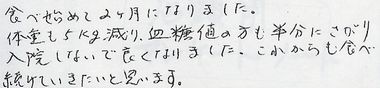 食べ始めて2ヶ月になりました。
体重も5kg減り、血糖値の方も半分にさがり
入院しないで良くなりました。これからも食べ
続けていきたいと思います。